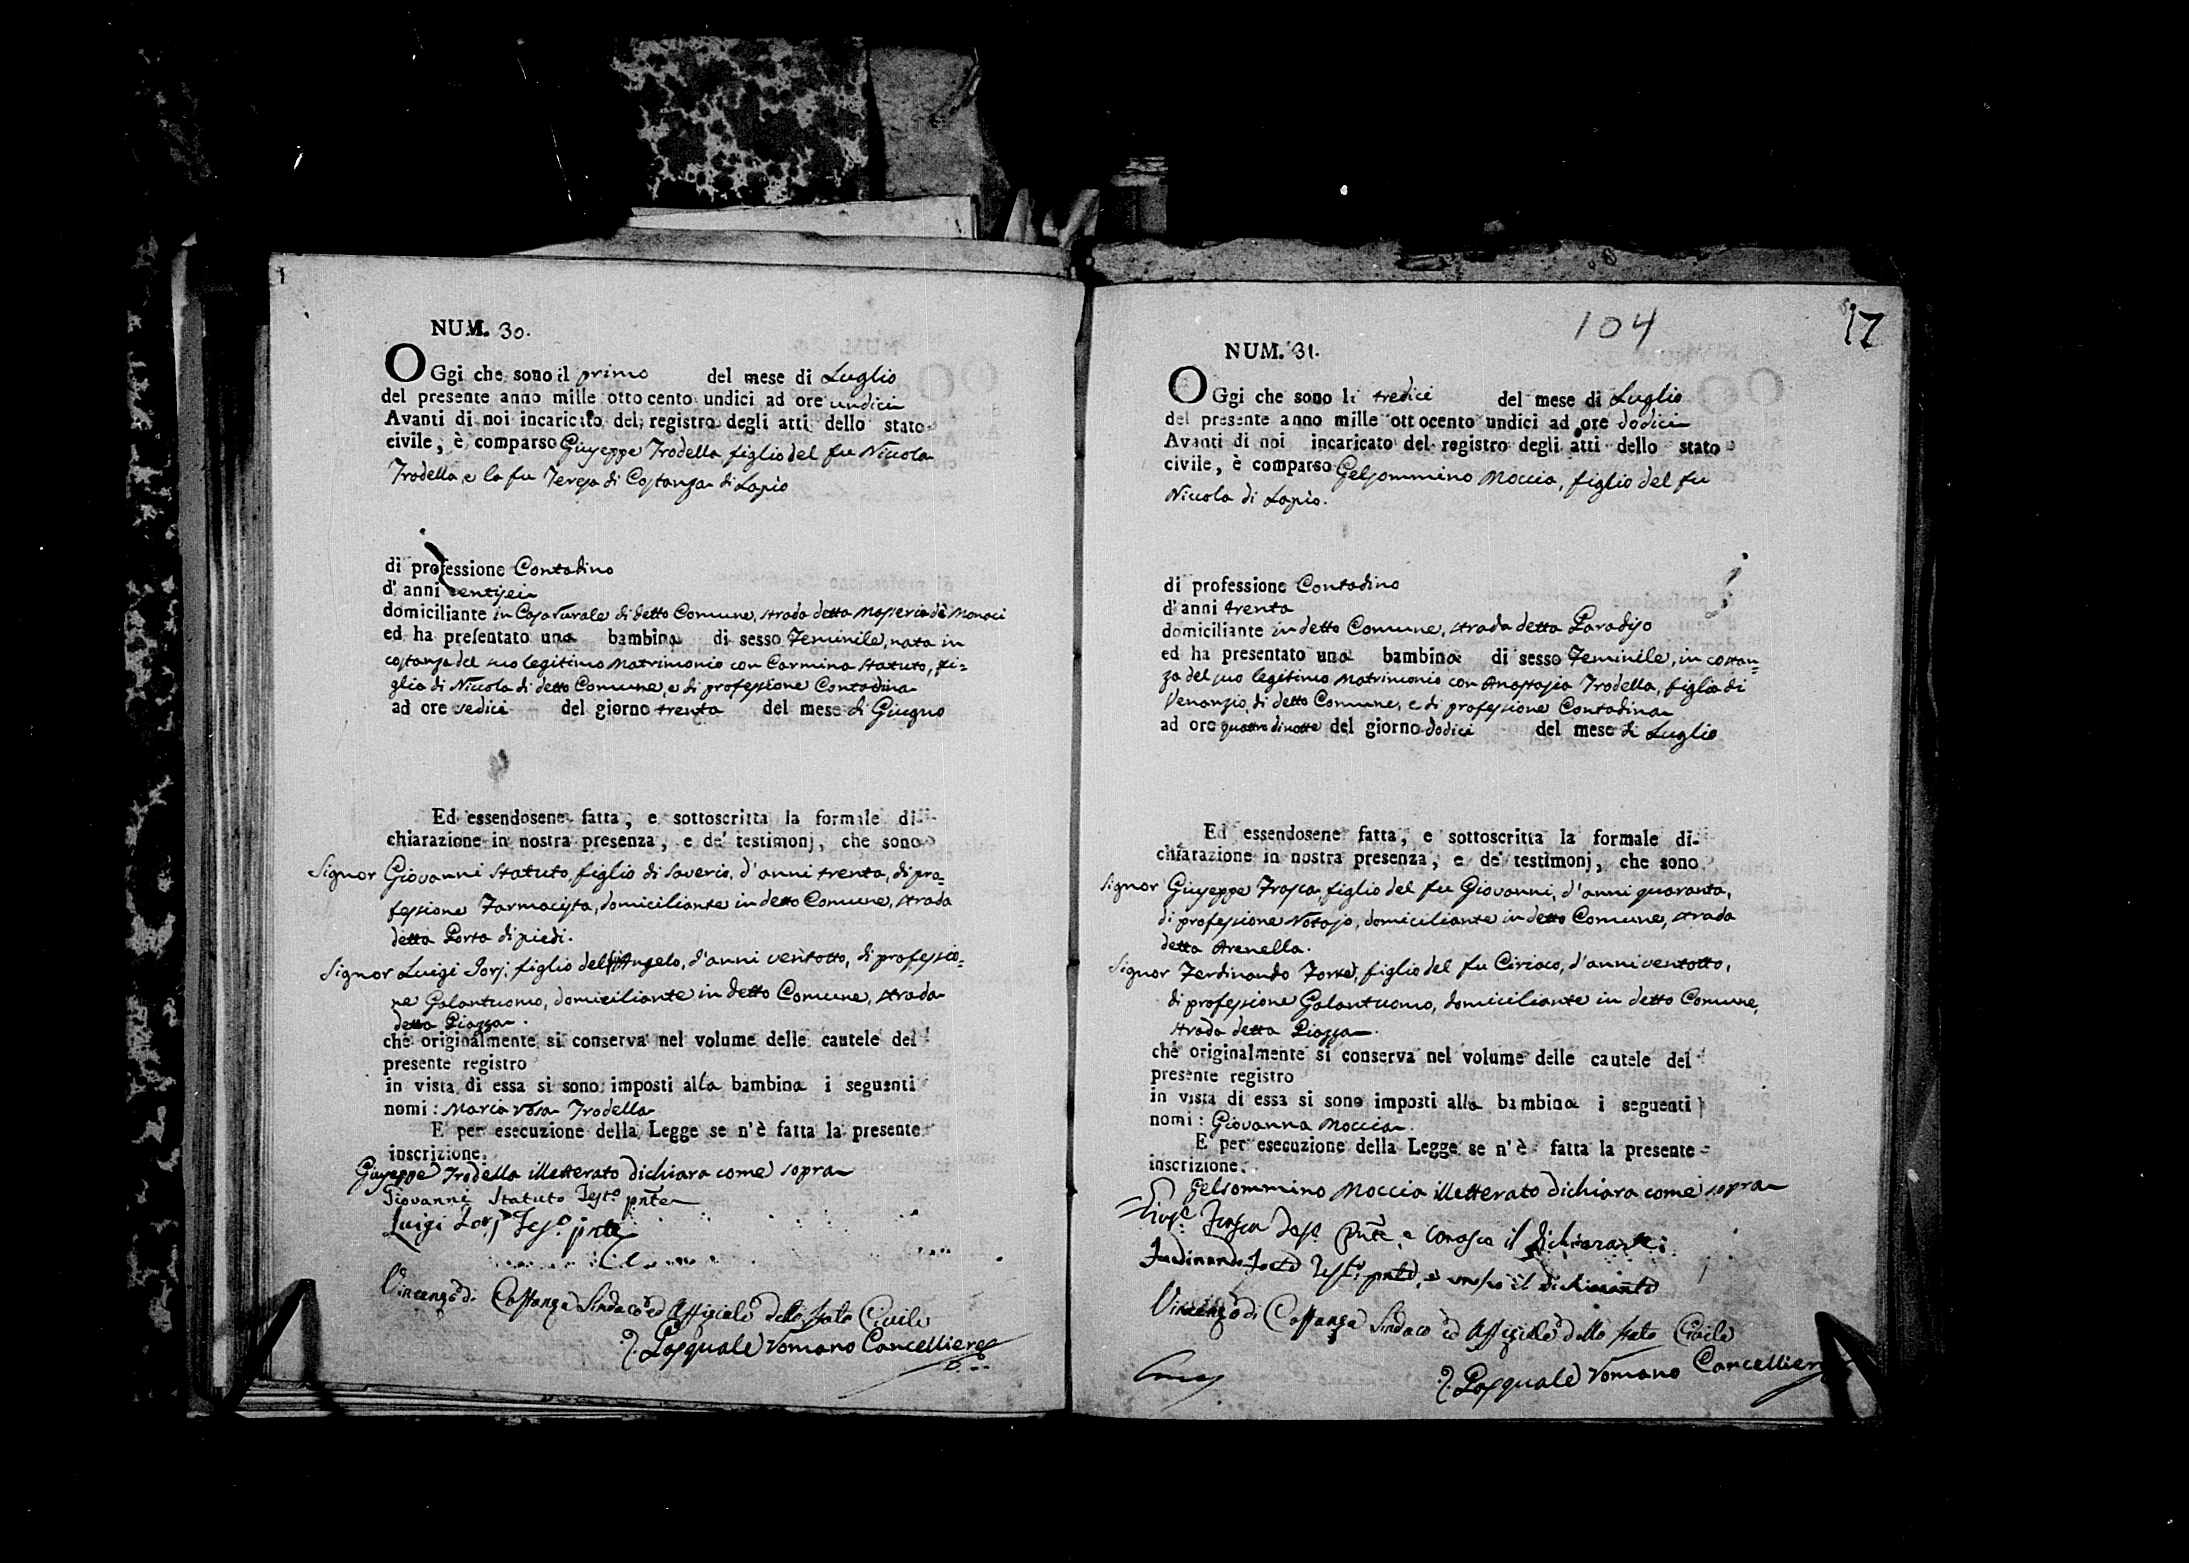 NUM. 30.
OGgi che sono il primo del mese di Luglio
del presente anno mille ottocento undici ad ore undici
Avanti di noi incaricato del registro degli atti dello stato
civile, è comparso Giuseppe Trodella figlio del fu Niccola
Trodella e la fu Teresa di Costanza di Lapio
di professione Contadino
d'anni ventisei
domiciliante in Casa rurale di detto Comune, strada detta Masseria de Monaci
ed ha presentato una bambina di sesso Feminile, nata in
costanza del suo legitimo Matrimonio con Carmina Statuto, fi=
glia di Niccola di detto Comune, e di professione Contadina
ad ore sedici del giorno trenta del mese di Giugno
Ed essendosene fatta, e sottoscritta la formale di-
chiarazione in nostra presenza, e de' testimonj, che sono
Signor Giovanni Statuto, figlio di Saverio, d'anni trenta, di pro=
fessione Farmacista, domiciliante in detto Comune, strada
detta Porta di piedi.
Signor Luigi Jorj, figlio del Angelo, d'anni ventotto, di professio=
ne Galantuomo, domiciliante in detto Comune, strada
detta Piazza.
che originalmente si conserva nel volume delle cautele del
presente registro
in vista di essa si sono imposti alla bambina i seguenti
nomi: Maria Rosa Trodella
E per esecuzione della Legge se n'è fatta la presente
inscrizione.
Giuseppe Trodella illetterato dichiara come sopra
Giovanni Statuto Testo pnte
Luigi Jorj Teso. pnte
Vincenzo di Costanza Sindaco ed Affiziale dello stato Civile
Pasquale Romano Cancelliere
104
17
NUM. 31.
OGgi che sono li tredici del mese di Luglio
del presente anno mille ottocento undici ad ore dodici
Avanti di noi incaricato del registro degli atti dello stato
civile, è comparso Gelsommino Moccia, figlio del fu
Niccola di Lapio.
di professione Contadino
d'anni trenta
domiciliante in detto Comune, strada detta Paradiso
ed ha presentato una bambina di sesso Feminile, in costan=
za del suo legitimo Matrimonio con Anastasia Trodella, figlia di
Venanzio, di detto Comune, e di professione Contadina
ad ore quattro di notte del giorno dodici del mese di Luglio
Ed essendosene fatta, e sottoscritta la formale di-
chiarazione in nostra presenza, e de' testimonj, che sono
Signor Giuseppe Frasca, figlio del fu Giovanni, d'anni quaranta,
di professione Notajo, domiciliante in detto Comune, strada
detta Arenella.
Signor Ferdinando Forte, figlio del fu Ciriaco, d'anni ventotto,
di professione Galantuomo, domiciliante in detto Comune,
strada detta Piazza.
che originalmente si conserva nel volume delle cautele del
presente registro
in vista di essa si sono imposti alla bambina i seguenti
nomi: Giovanna Moccia.
E per esecuzione della Legge se n'è fatta la presente
inscrizione.
Gelsommino Moccia illetterato dichiara come sopra
Frasca Test. pnte, e conosco il dichiarante
Ferdinando Forte Testo. pnte, e conosco il dichiarante
Vincenzo di Costanza Sindaco ed Affiziale dello stato Civile
Pasquale Romano Cancelliere